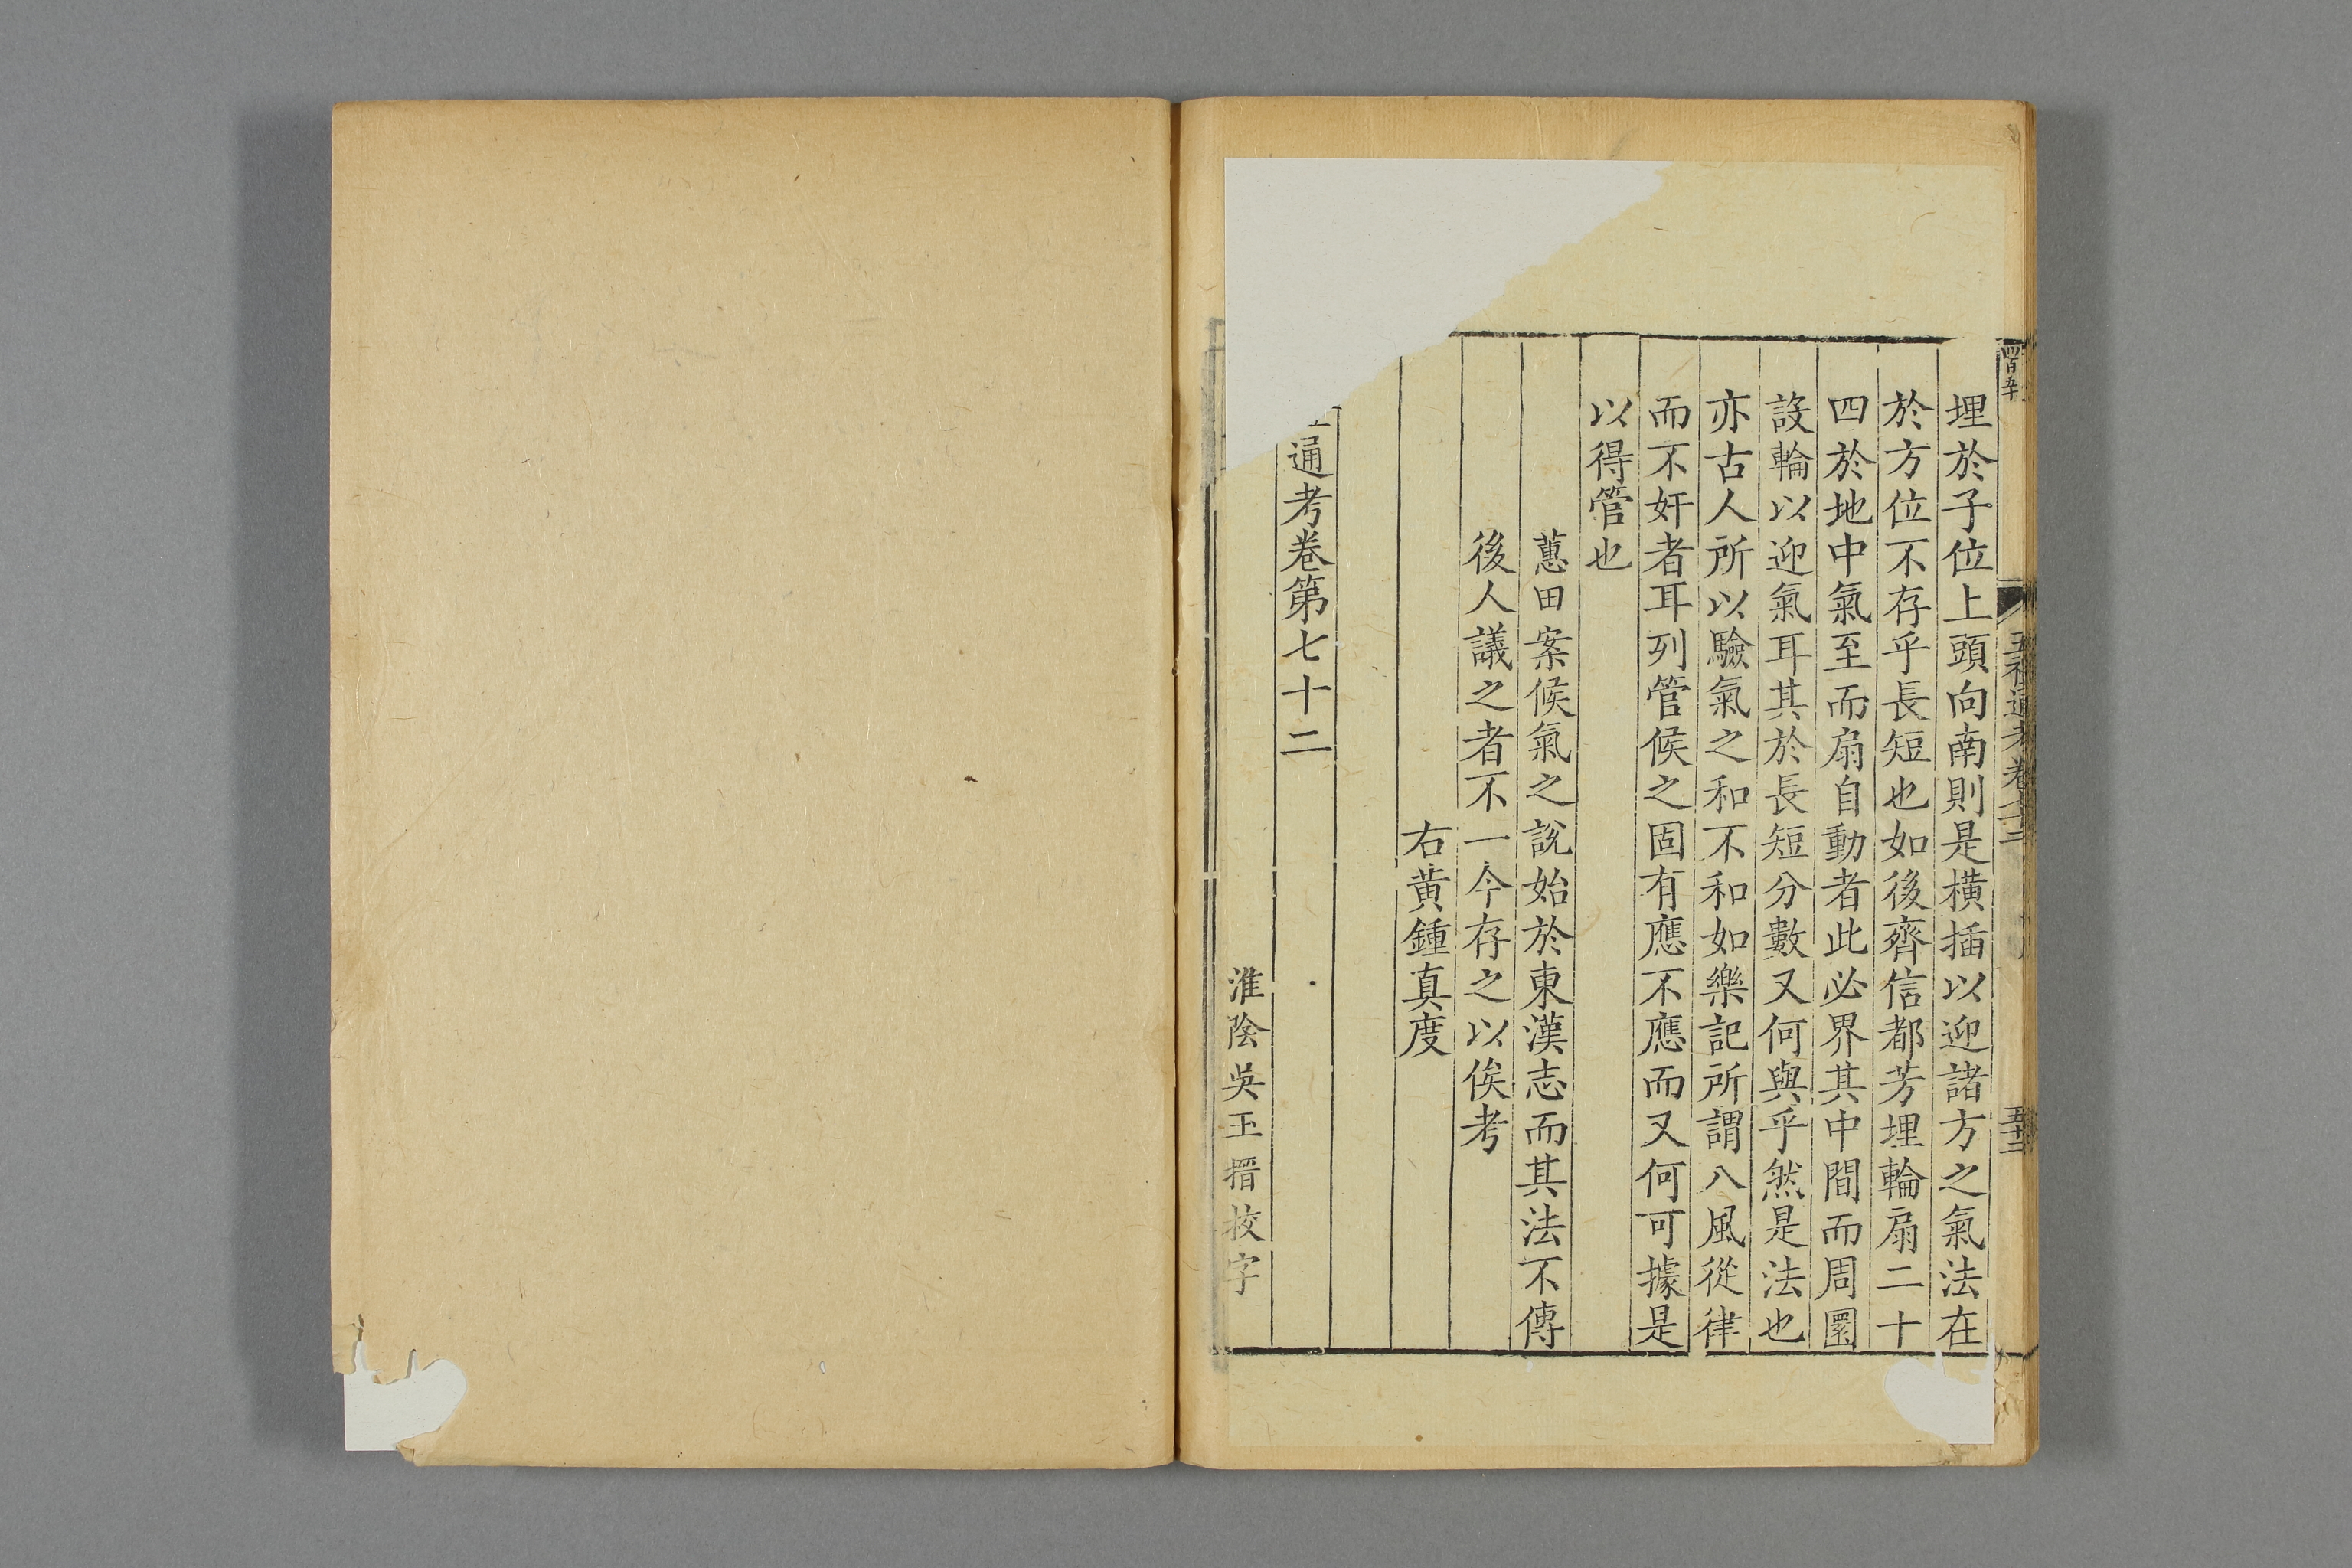 埋於子位上頭向南則是橫插以迎諸方之氣法在
於方位不存乎長短也如後齊信都芳埋輪扇二十
四於地中氣至而扇自動者此必界其中間而周圍
設輪以迎氣耳其於長短分數又何與乎然是法也
亦古人所以驗氣之和不和如樂記所謂八風從律
而不奸者耳列管候之固有應不應而又何可據是
以得管也
蕙田案候氣之說始於東漢志而其法不傳
後人議之者不一今存之以俟考
右黃鍾真度
通考卷第七十二
淮陰吳玉搢挍字